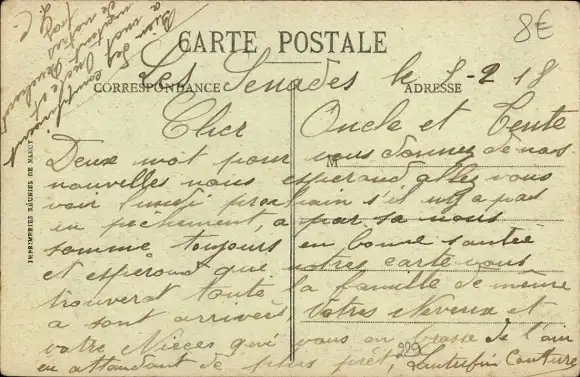 8€
CARTE POSTALE
CORRESPONDANCE
ADRESSE
Les Senades le 8-2 18
Cher Oncle et Tente
M
Deux mot pour vous donnez de nos
nouvelles nous esperand allez vous
voir lundi prochain s'il ny a pas
en pêchement, a par sa nous
somme toujours en bonne santée
et espérond que notres carte vous
trouverat toute la famille de même
a sont arrivée Votres Neveux et
votre Nieces qui vous en brasse de l'oin
en attandant de plus prêt,
229
IMPRIMERIES RÉUNIES DE NANCY
Bien des